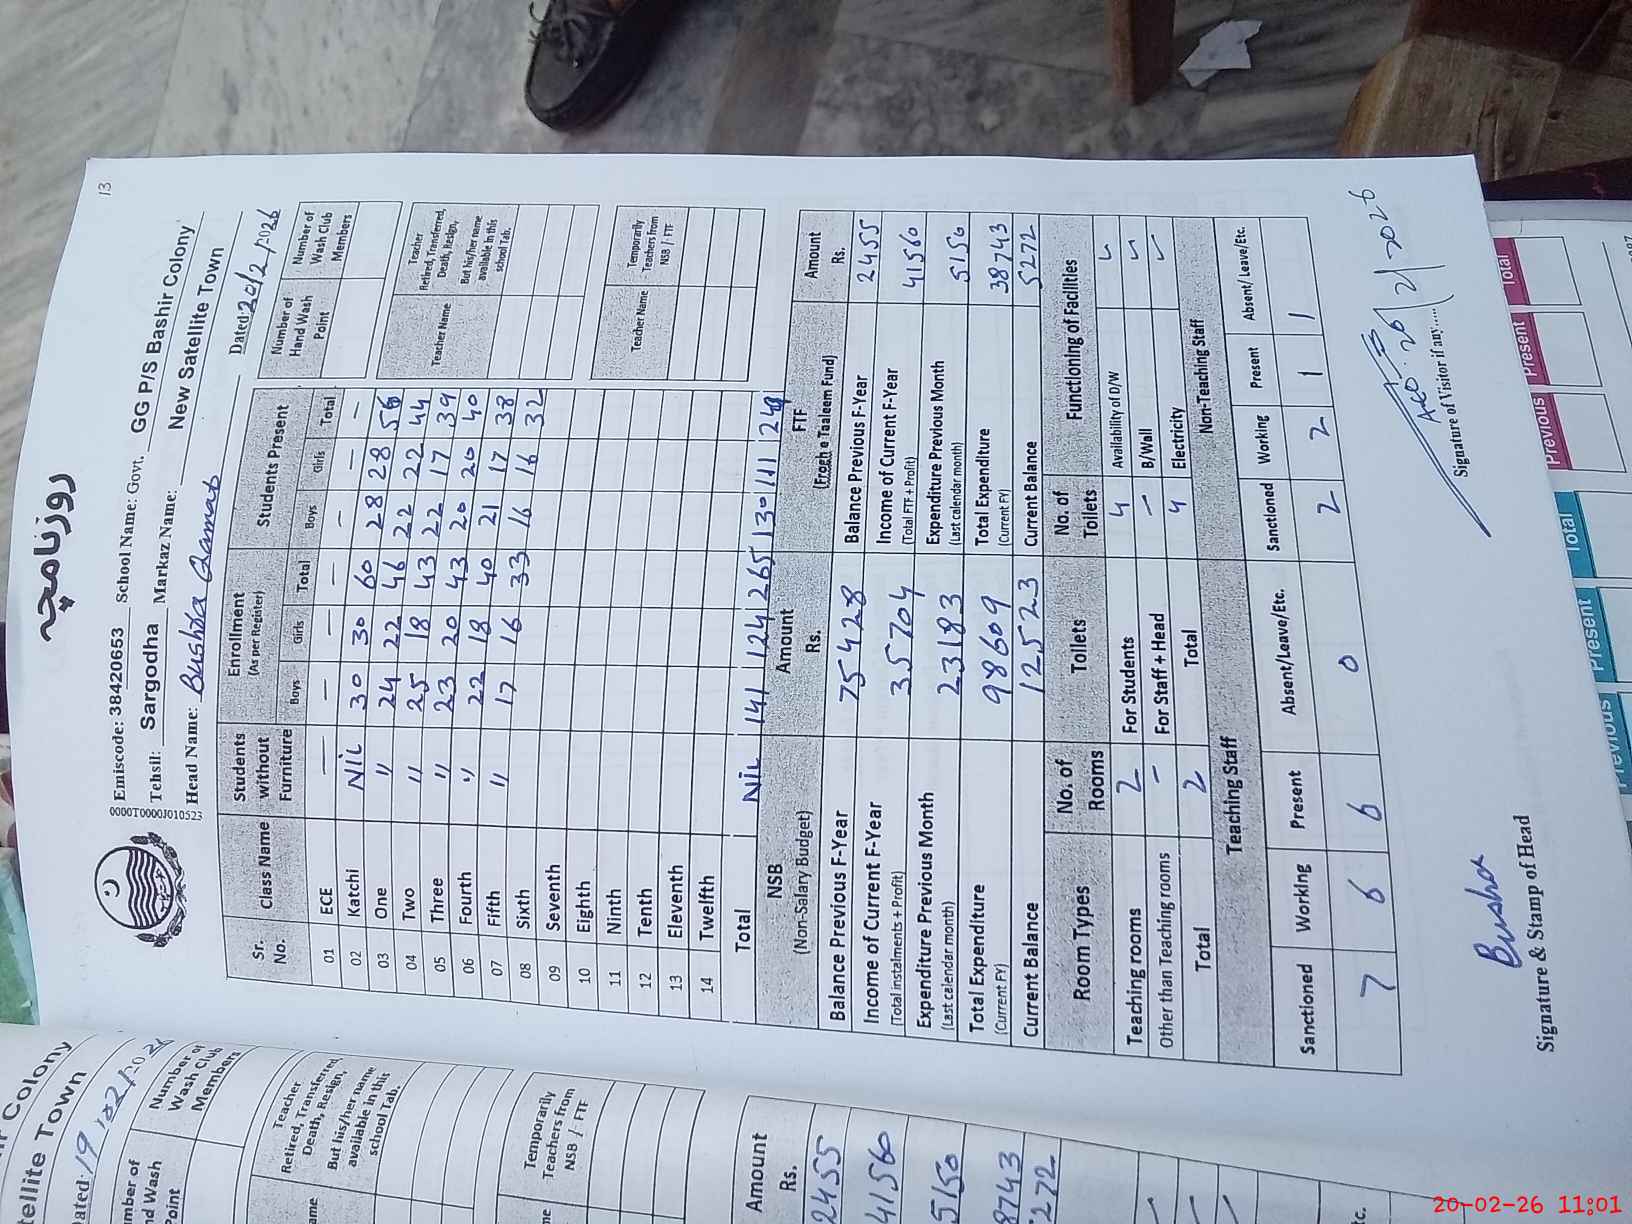 13
روزنامچہ
Emiscode: 38420653 School Name: Govt. GG P/S Bashir Colony
Tehsil: Sargodha Markaz Name: New Satellite Town
0000T0000J010523
Head Name: Bushra Qamar Dated: 20/2/2026
Sr. No. Class Name Students without Furniture Enrollment (As per Register) Students Present
Boys Girls Total Boys Girls Total
01 ECE — — — — — — —
02 Katchi Nil 30 30 60 28 28 56
03 One " 24 22 46 22 22 44
04 Two " 25 18 43 22 17 39
05 Three " 23 20 43 20 20 40
06 Fourth " 22 18 40 21 17 38
07 Fifth " 17 16 33 16 16 32
08 Sixth
09 Seventh
10 Eighth
11 Ninth
12 Tenth
13 Eleventh
14 Twelfth
Total Nil 141 124 265 130 111
Number of Hand Wash Point Number of Wash Club Members
Teacher Name Teacher Retired, Transferred, Death, Resign, But his/her name available in this school Tab.
Teacher Name Temporarily Teachers from NSB / FTF
NSB (Non-Salary Budget) Amount Rs. FTF (Frogh e Taaleem Fund) Amount Rs.
Balance Previous F-Year 75428 Balance Previous F-Year 2455
Income of Current F-Year (Total instalments + Profit) 35704 Income of Current F-Year (Total FTF + Profit) 41560
Expenditure Previous Month (Last calendar month) 23183 Expenditure Previous Month (Last calendar month) 5150
Total Expenditure (Current FY) 98609 Total Expenditure (Current FY) 38743
Current Balance 12523 Current Balance 5272
Room Types No. of Rooms Toilets No. of Toilets Functioning of Facilities
Teaching rooms 2 For Students 4 Availability of D/W ✓
Other than Teaching rooms - For Staff + Head - B/Wall ✓
Total 2 Total 4 Electricity ✓
Teaching Staff Non-Teaching Staff
Sanctioned Working Present Absent/Leave/Etc. Sanctioned Working Present Absent/Leave/Etc.
7 6 6 0 2 2 1 1
Bushra
Signature & Stamp of Head
20/2/2026
Signature of Visitor if any.....
Colony
tellite Town
ated: 19/02/2026
umber of nd Wash Point Number of Wash Club Members
ame Teacher Retired, Transferred, Death, Resign, But his/her name available in this school Tab.
me Temporarily Teachers from NSB / FTF
Amount Rs.
2455
41560
5150
8743
272
tc.
Previous Present Total
Previous Present Total
20-02-26 11:01